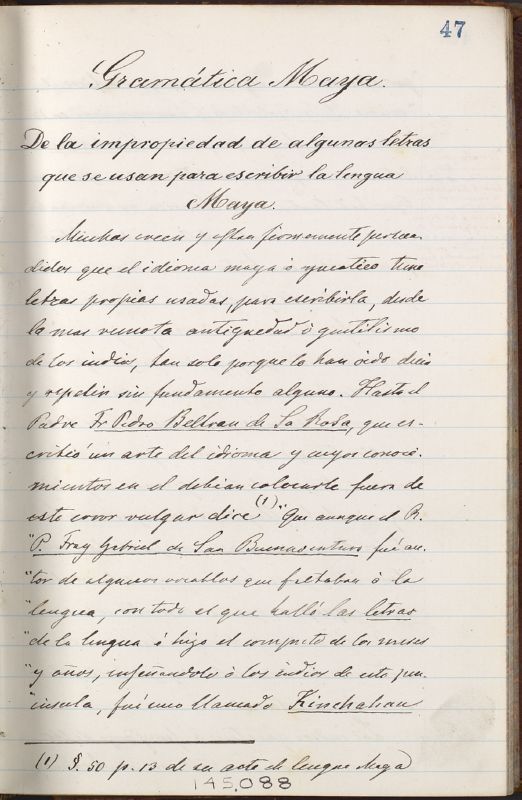 47
Gramática Maya.
De la impropiedad de algunas letras
que se usan para escribir la lengua
Maya.
Muchos creen y estan firmemente persua-
didos que el idioma maya ó yucateco tuvo
letras propias usadas, para escribirla, desde
la mas remota antiguedad ó gentilismo
de los indios, tan solo porque lo han óido decir
y repetir sin fundamento alguno. Hasta el
Padre Fr Pedro Beltran de Sa Rosa, que es-
cribió un arte del idioma y cuyos conoci-
mientos en el debian colocarle fuera de
este error vulgar dice (1) "Que aunque el R.
"P. Fray Gabriel de San Buenaventura fué au-
"tor de algunos vocablos que faltaban á la
"lengua, con todo el que halló las letras
"de la lengua é hizo el computo de los meses
"y años, enseñandolo á los indios de esta pen-
"insula, fué uno llamado Kinchahau
(1) §. 50 p. 13 de su arte de lengua Maya
145,088